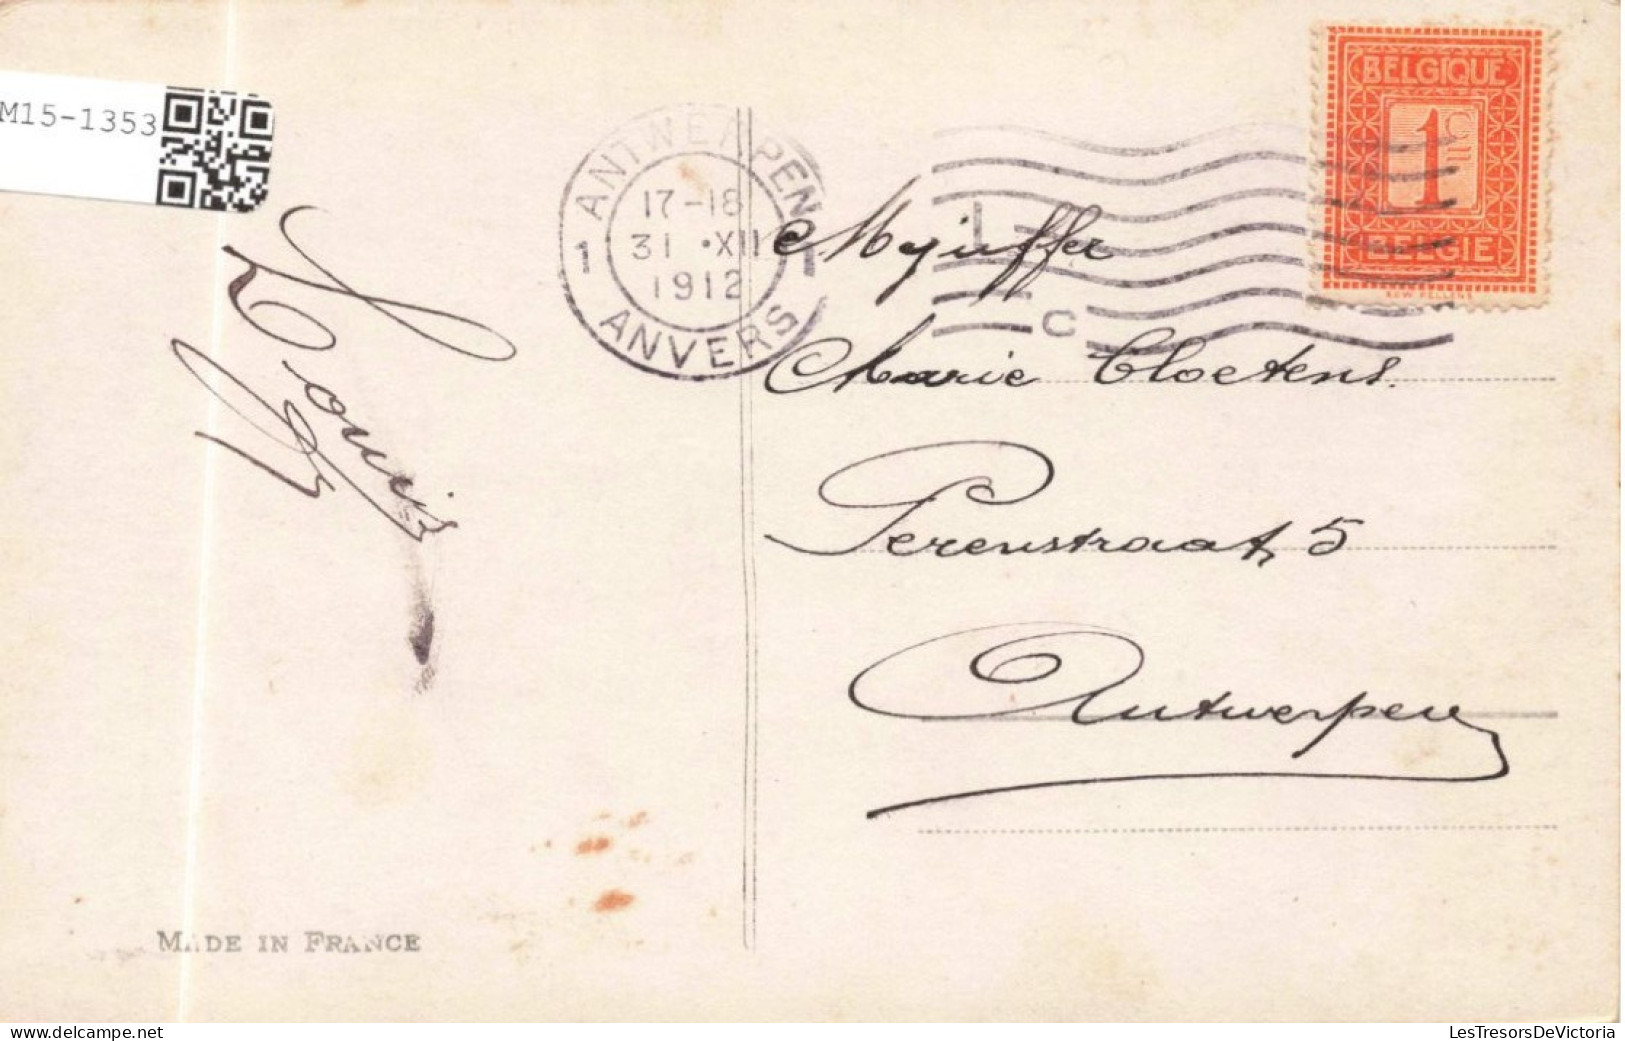 M15-1353
ANTWERPEN
1 17-18 1
31 •XII
1912
ANVERS
BELGIQUE
1 Cm
BELGIE
L
C
Louis
Mejuffer
Marie Cloetens.
Perenstraat, 5
Antwerpen
MADE IN FRANCE
LesTresorsDeVictoria
www.delcampe.net